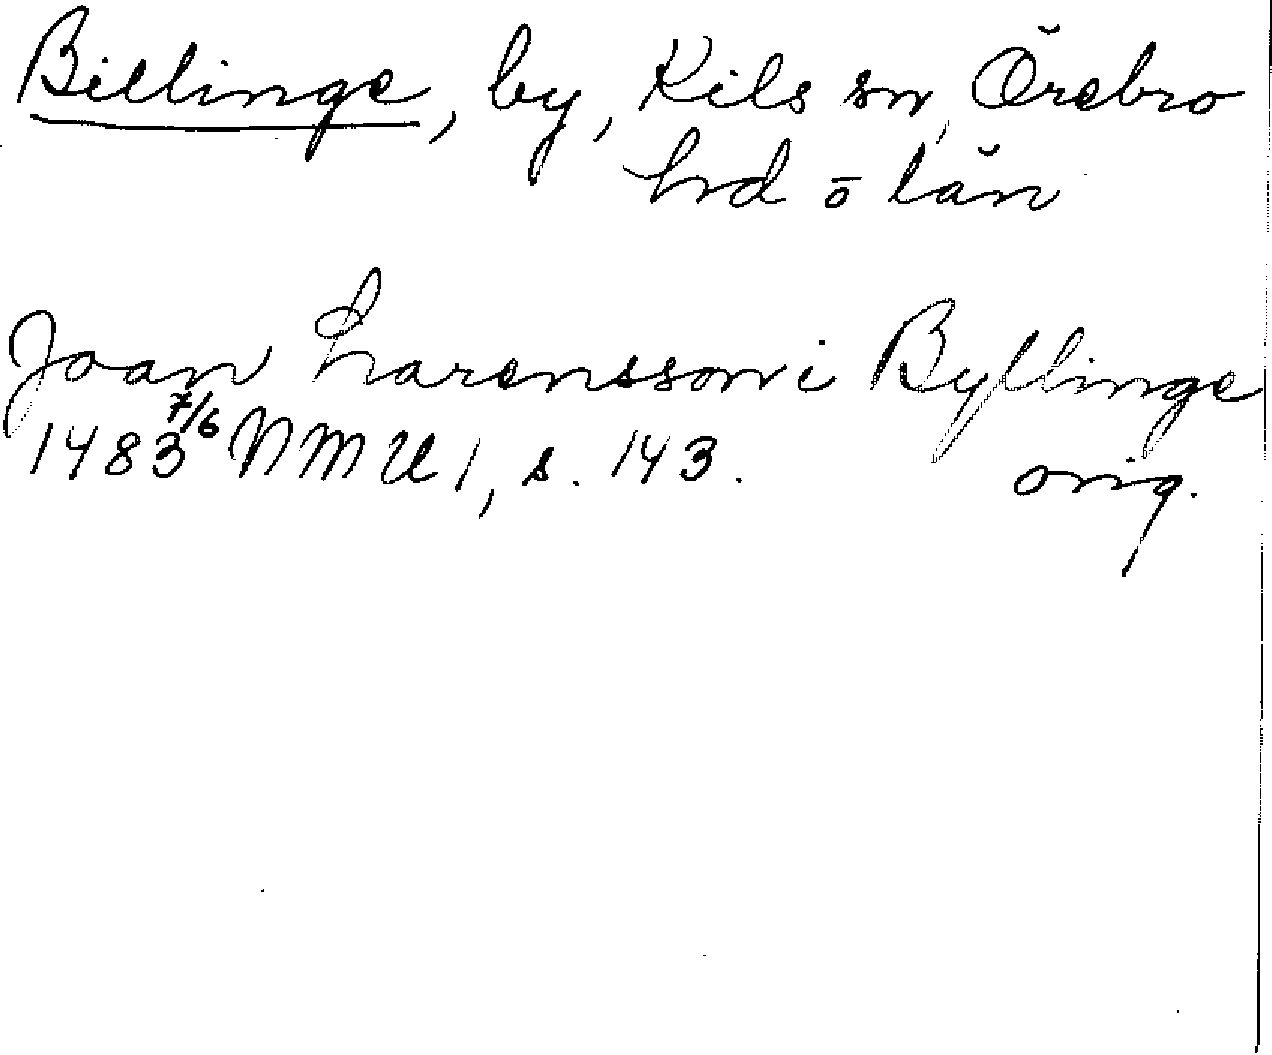 Billinge, by, Kils sn, Örebro
hrd o län
Joan Larensson i Byllinge
1483 7/6 NMU 1, s. 143. orig.